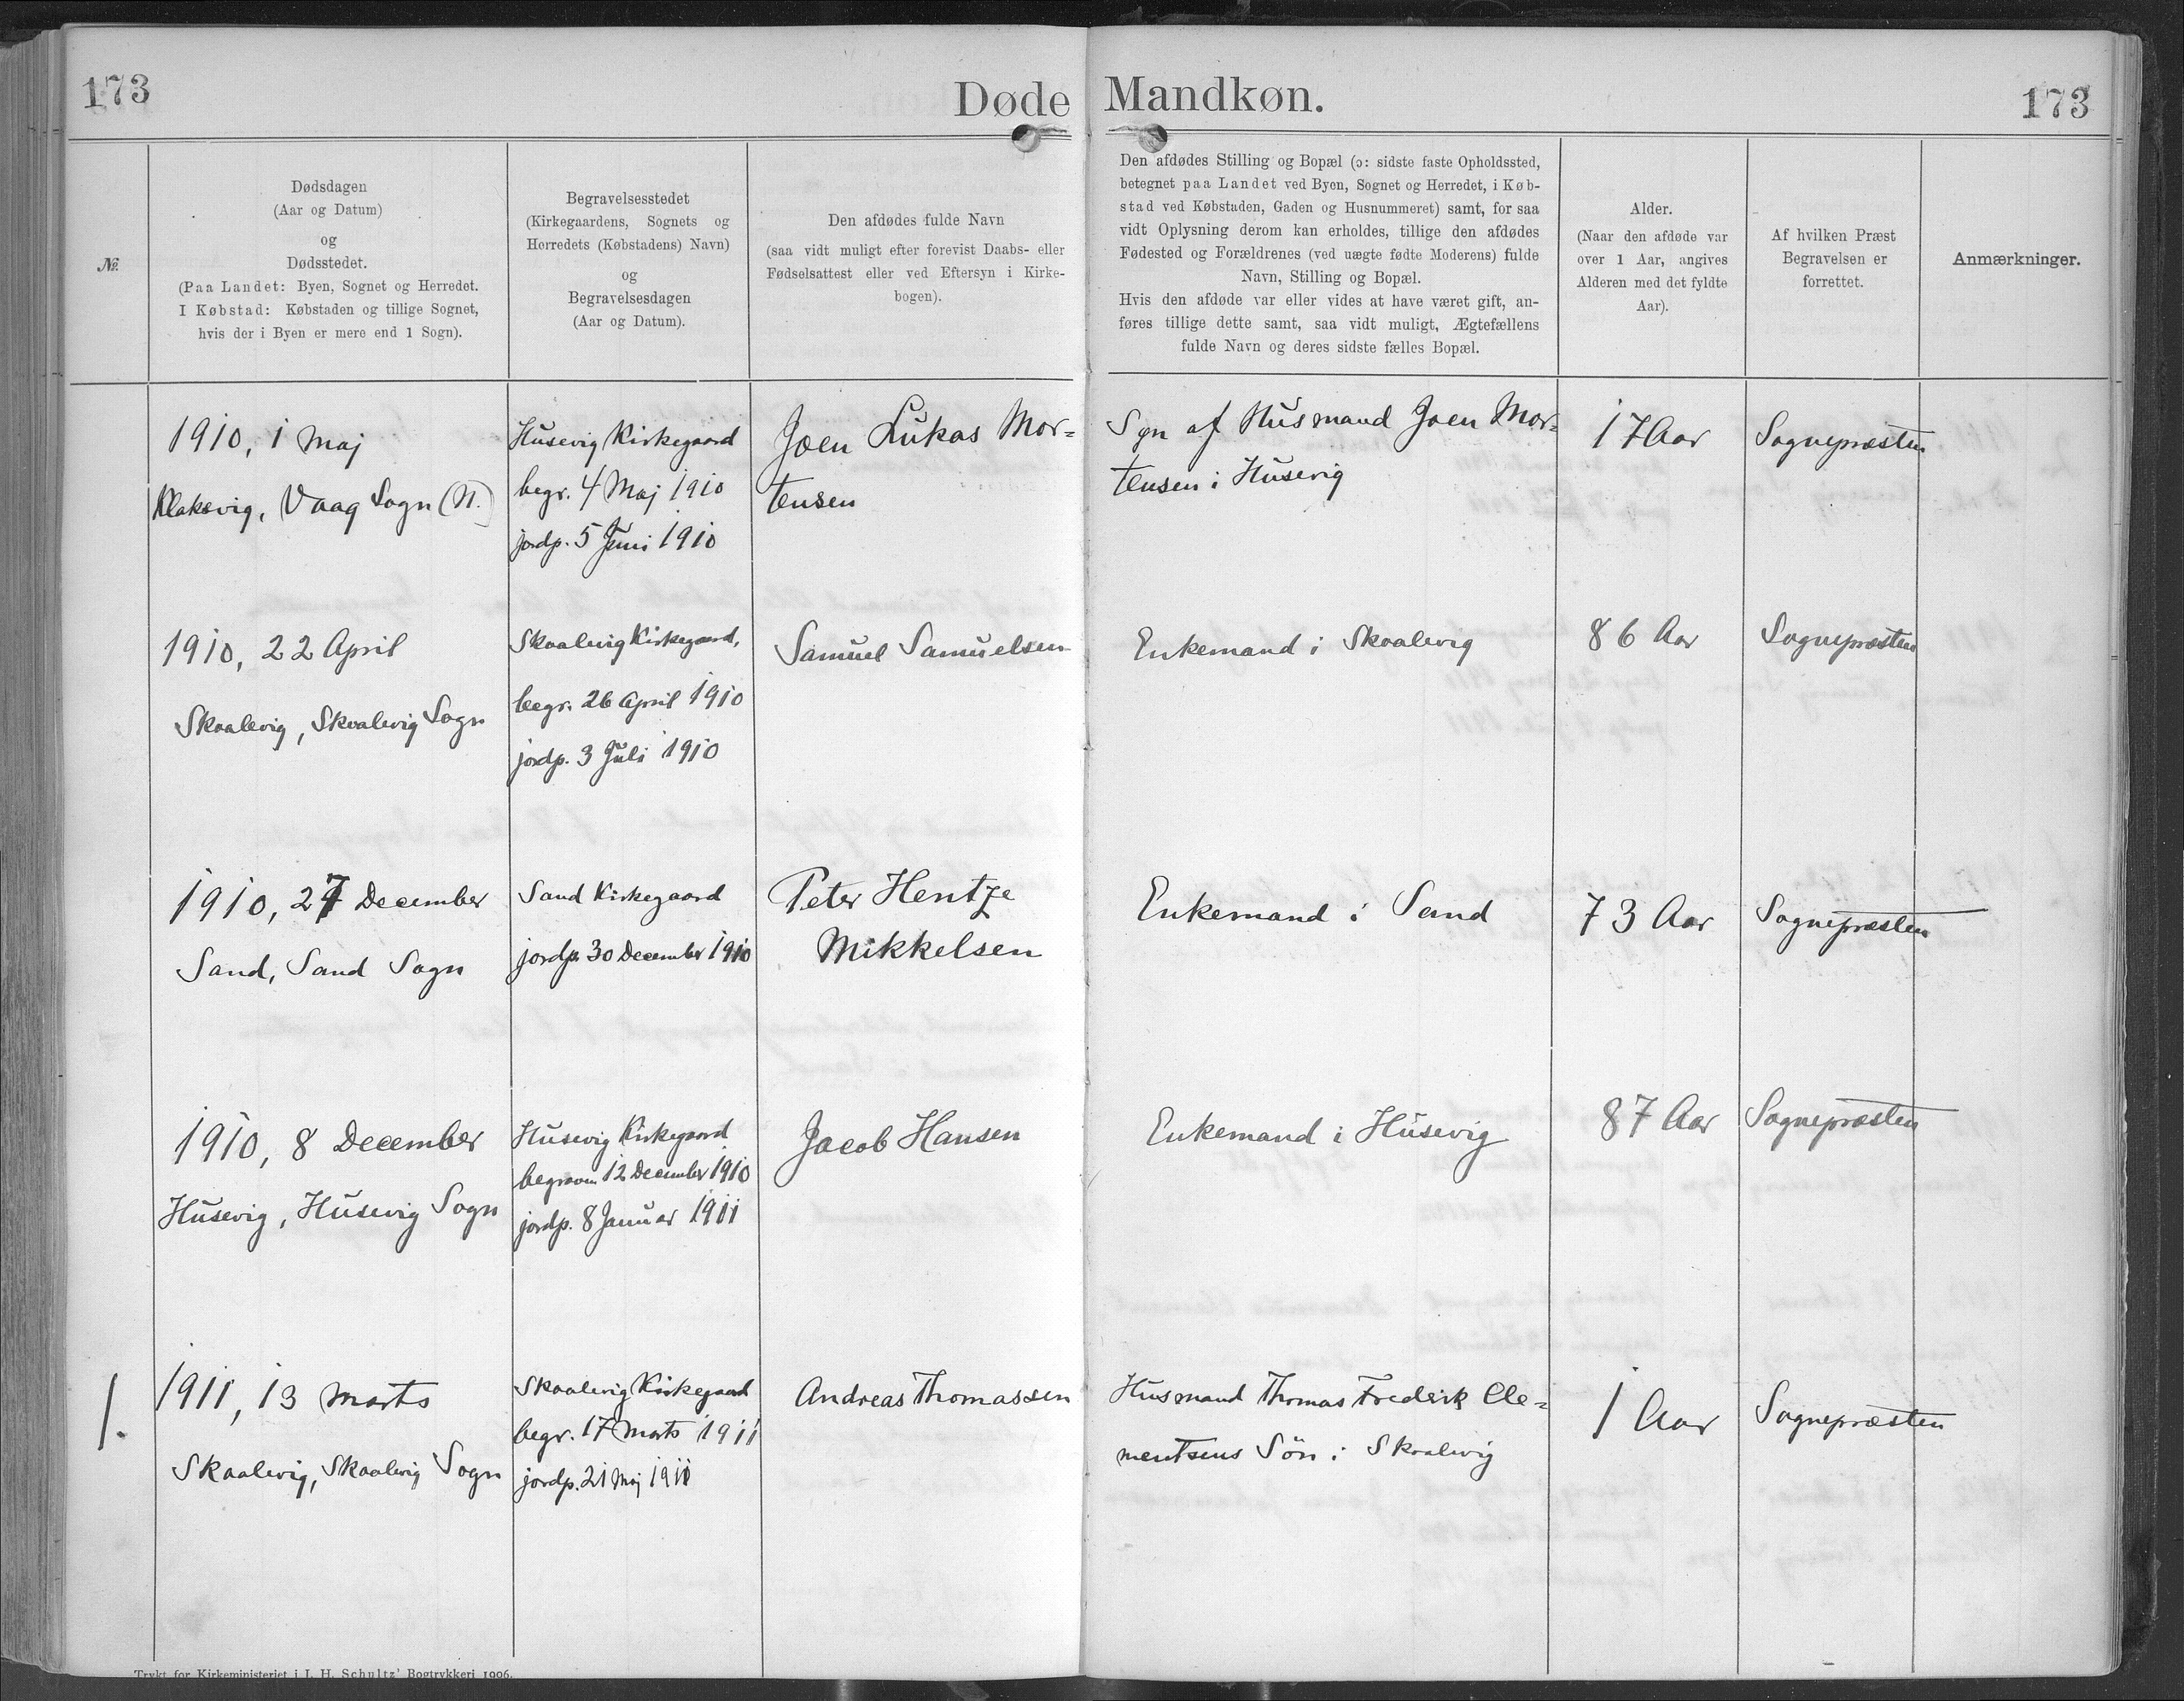 173
Døde Mandkøn.
173
№
Dødsdagen
(Aar og Datum)
og
Dødsstedet.
(Paa Landet: Byen, Sognet og Herredet.
I Købstad: Købstaden og tillige Sognet,
hvis der i Byen er mere end 1 Sogn).
Begravelsesstedet
(Kirkegaardens, Sognets og
Herredets (Købstadens) Navn)
og
Begravelsesdagen
(Aar og Datum).
Den afdødes fulde Navn
(saa vidt muligt efter forevist Daabs- eller
Fødselsattest eller ved Eftersyn i Kirke-
bogen).
Den afdødes Stilling og Bopæl (ɔ: sidste faste Opholdssted,
betegnet paa Landet ved Byen, Sognet og Herredet, i Køb-
stad ved Købstaden, Gaden og Husnummeret) samt, for saa
vidt Oplysning derom kan erholdes, tillige den afdødes
Fødested og Forældrenes (ved uægte fødte Moderens) fulde
Navn, Stilling og Bopæl.
Hvis den afdøde var eller vides at have været gift, an-
føres tillige dette samt, saa vidt muligt, Ægtefællens
fulde Navn og deres sidste fælles Bopæl.
Alder.
(Naar den afdøde var
over 1 Aar, angives
Alderen med det fyldte
Aar).
Af hvilken Præst
Begravelsen er
forrettet.
Anmærkninger.
1910, 1 Maj
Klaksvig, Vaag Sogn (N.)
Husevig Kirkegaard
begr. 4 Maj 1910
jordp. 5 Juni 1910
Joen Lukas Mor=
tensen
Søn af Husmand Joen Mor=
tensen i Husevig
17 Aar
Sognepræsten
1910, 22 April
Skaalevig, Skvalevig Sogn
Skaalevig Kirkegaard,
begr. 26 April 1910
jordp. 3 Juli 1910
Samuel Samuelsen
Enkemand i Skvalevig
86 Aar
Sognepræsten
1910, 27 December
Sand, Sand Sogn
Sand Kirkegaard
jordp. 30 December 1910
Peter Hentze
Mikkelsen
Enkemand i Sand
73 Aar
Sognepræsten
1910, 8 December
Husevig, Husevig Sogn
Husevig Kirkegaard
begraven 12 December 1910
jordp. 8 Januar 1911
Jacob Hansen
Enkemand i Husevig
87 Aar
Sognepræsten
1.
1911, 13 Marts
Skaalevig, Skaalevig Sogn
Skaalevig Kirkegaard
begr. 17 Marts 1911
jordp. 21 Maj 1911
Andreas Thomassen
Husmand Thomas Frederik Cle=
mentsens Sön i Skaalevig
1 Aar
Sognepræsten
Trykt for Kirkeministeriet i J. H. Schultz' Bogtrykkeri 1906.